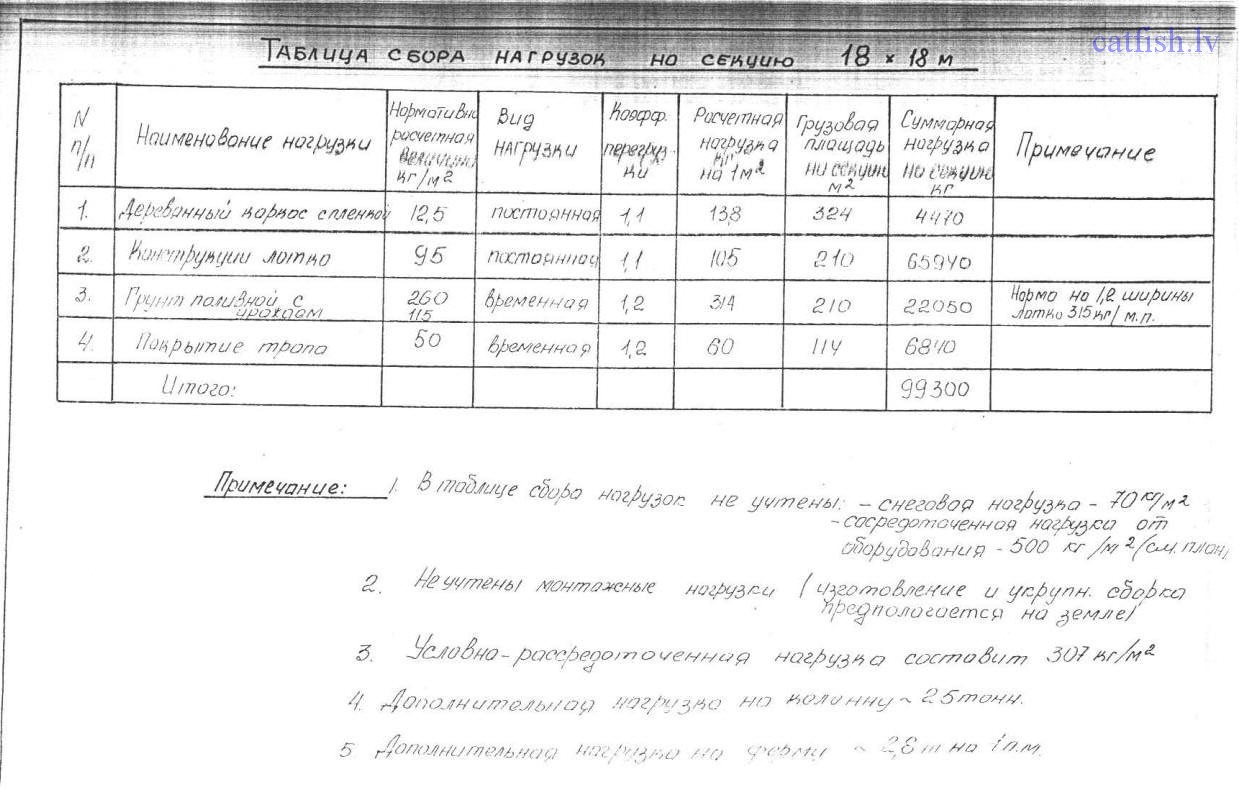 catfish.lv
ТАБЛИЦА СБОРА НАГРУЗОК НА СЕКЦИЮ 18 × 18 м
N п/п | Наименование нагрузки | Нормативно расчетная величина кг/м2 | Вид нагрузки | Коэфф. перегрузки | Расчетная нагрузка на 1м2 | Грузовая площадь на секцию м2 | Суммарная нагрузка на секцию кг | Примечание
1. | Деревянный каркас с пленкой | 12,5 | постоянная | 1,1 | 13,8 | 324 | 4470
2. | Конструкции лотка | 95 | постоянная | 1,1 | 105 | 210 | 65940
3. | Грунт поливной с | 260 115 | временная | 1,2 | 314 | 210 | 22050 | Норма на 1,2 ширины лотка 315 кг/м.п.
4. | Покрытие трапа | 50 | временная | 1,2 | 60 | 114 | 6840
Итого: | 99300
Примечание: 1. В таблице сбора нагрузок не учтены: - снеговая нагрузка - 70 кг/м2
- сосредоточенная нагрузка от
оборудования - 500 кг/м2 (см. план)
2. Не учтены монтажные нагрузки (изготовление и укрупн. сборка
предполагается на земле)
3. Условно-рассредоточенная нагрузка составит 307 кг/м2
4. Дополнительная нагрузка на колонну ~ 25 тонн.
5 Дополнительная нагрузка на ферму ~ 2,8 т на 1 п.м.